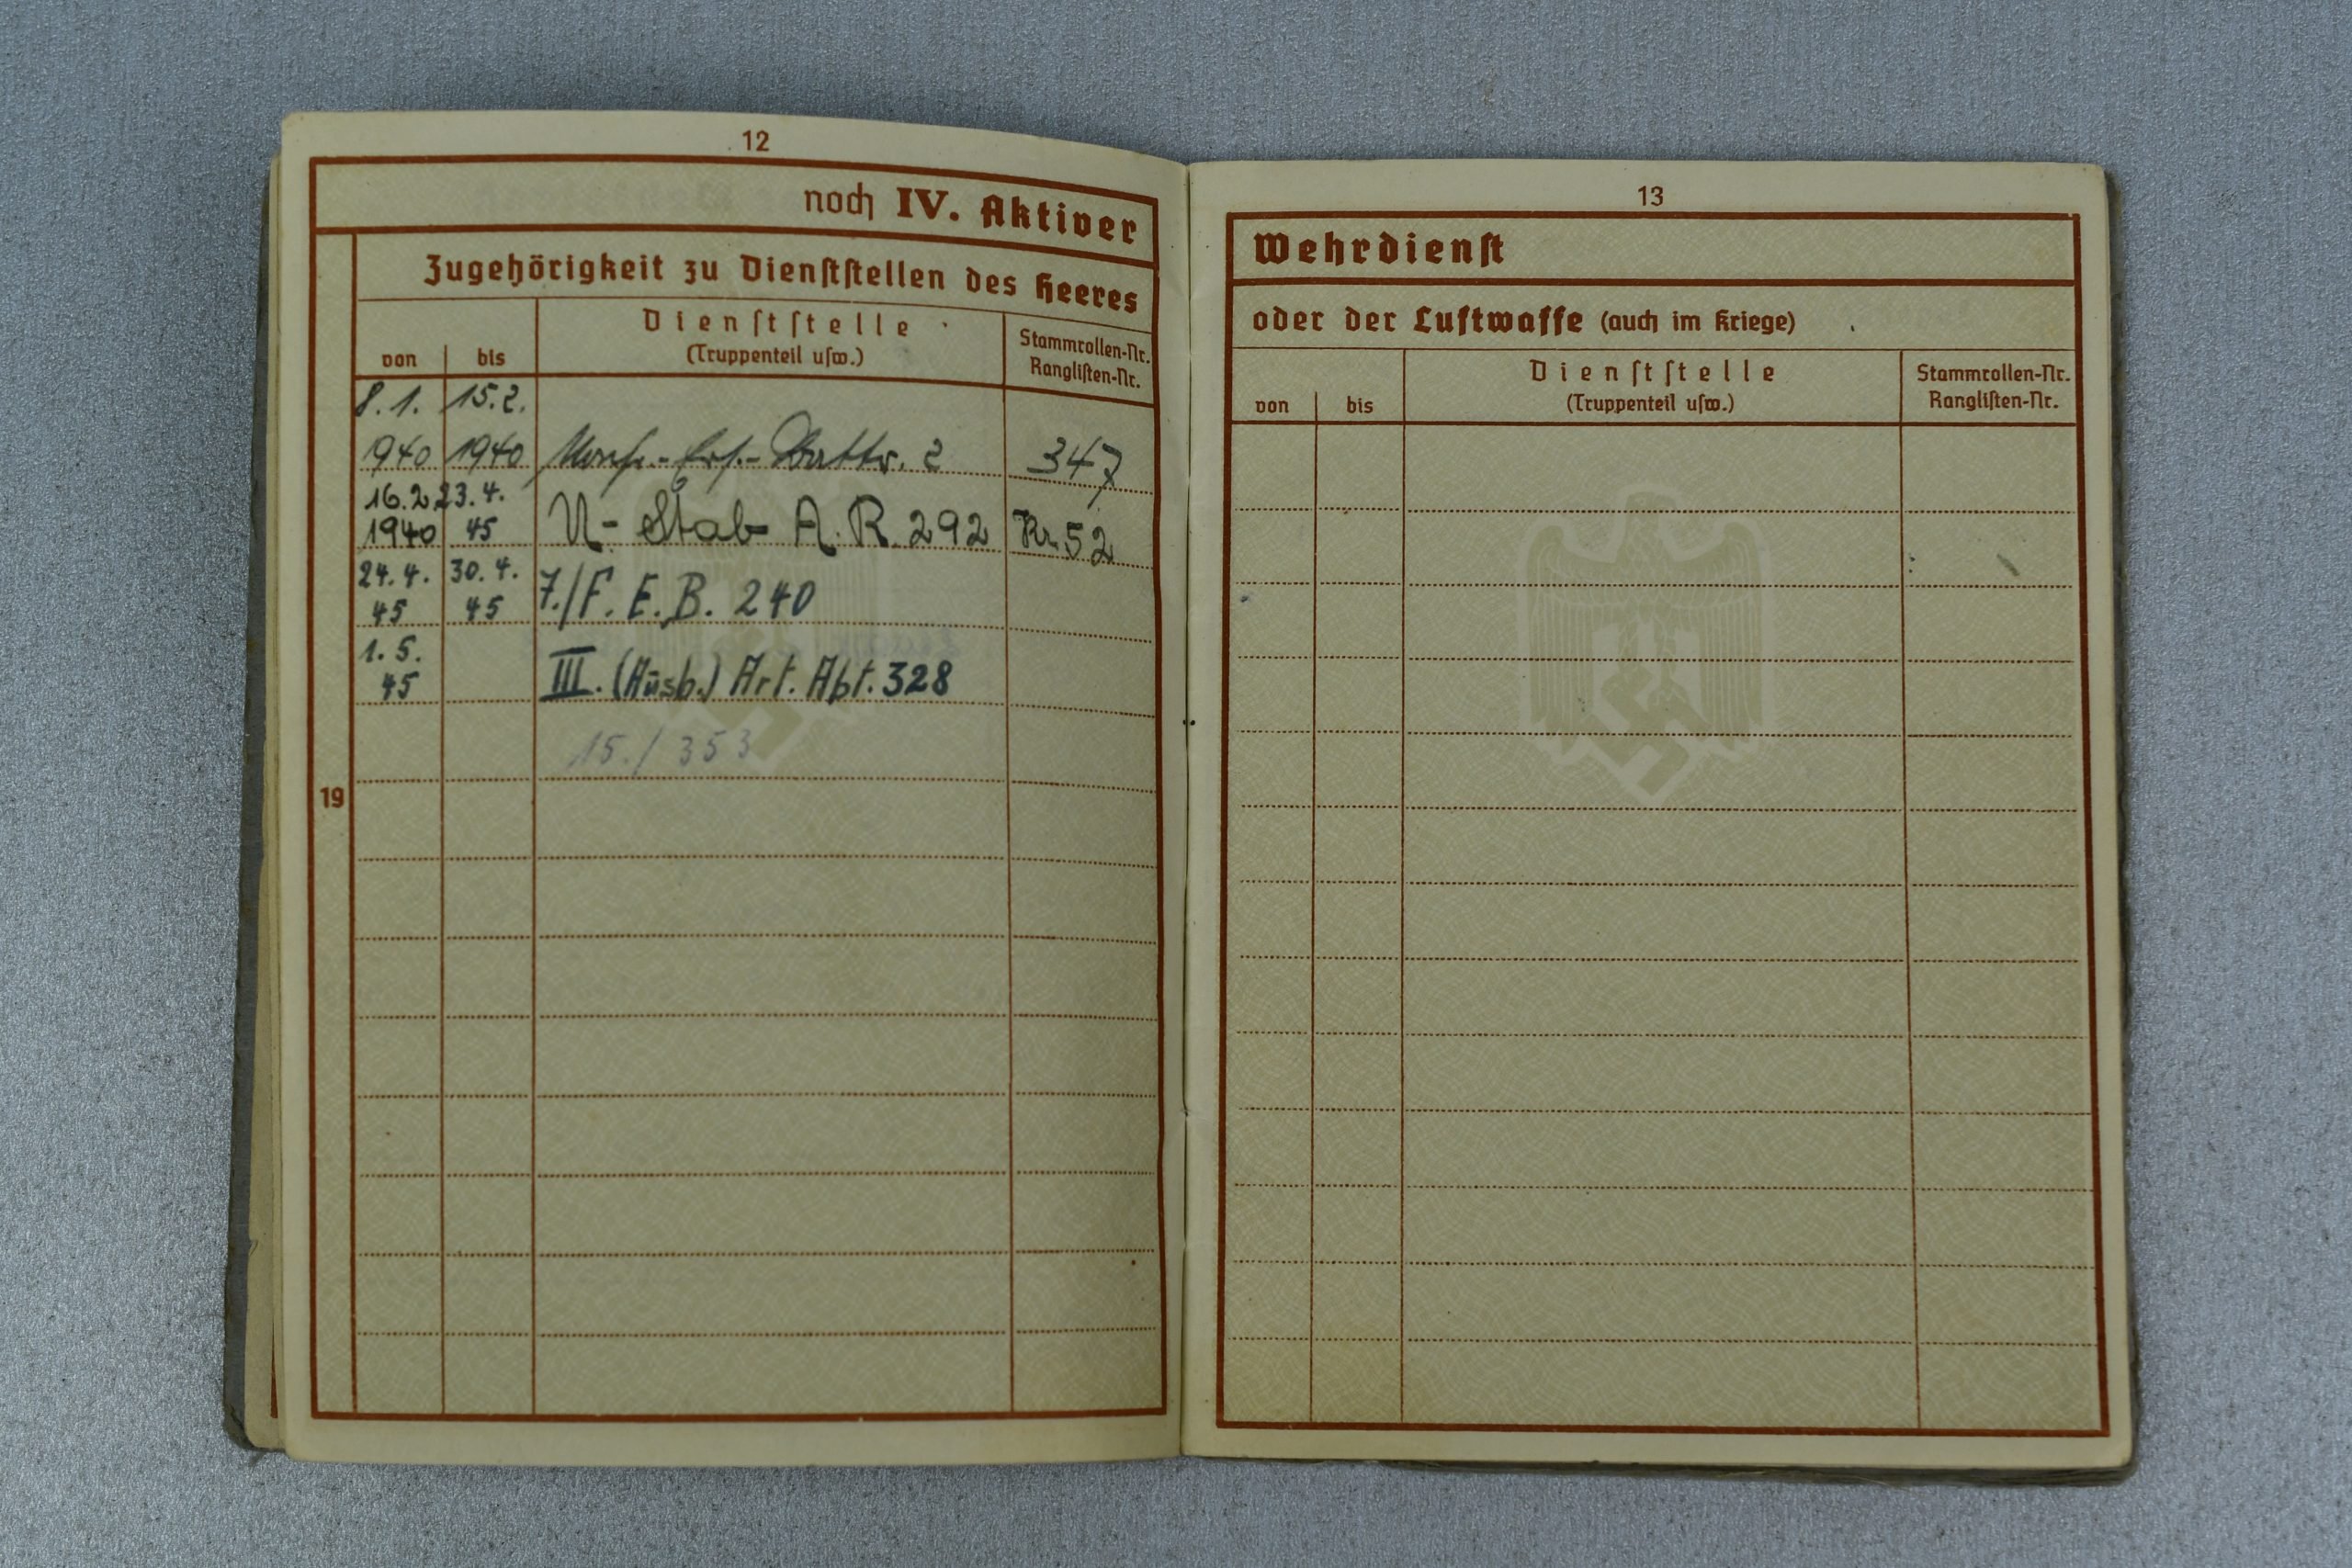 12
noch IV. Aktiver
Zugehörigkeit zu Dienststellen des Heeres
von bis Dienststelle
(Truppenteil usw.) Stammrollen-Nr.
Ranglisten-Nr.
8.1. 15.2.
1940 1940 Ers.- Battr. 2 347
16.2 23.4.
1940 45 N- Stab A.R. 292 Kr. 52
24.4. 30.4.
45 45 7./F.E.B. 240
1.5.
45 III. (Ausb.) Art. Abt. 328
15./353
19
13
Wehrdienst
oder der Luftwaffe (auch im Kriege)
von bis Dienststelle
(Truppenteil usw.) Stammrollen-Nr.
Ranglisten-Nr.